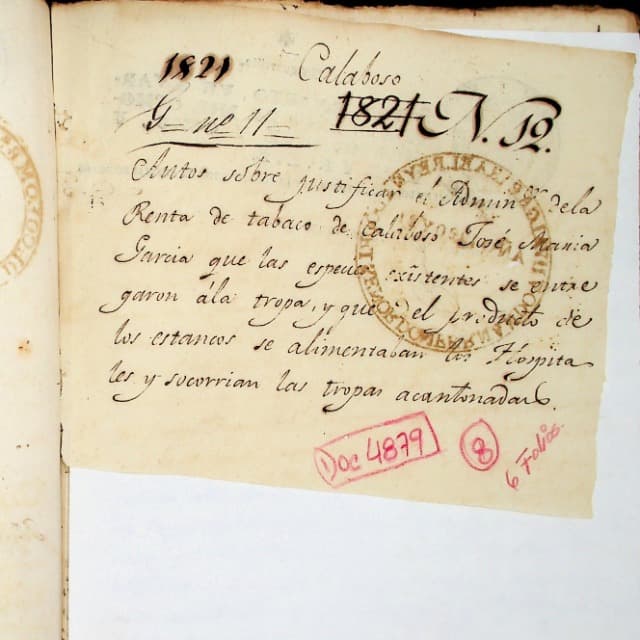 1821 Calaboso
G= nº 11= 1821 N. 12.
Autos sobre justificar el Admin.or dela
Renta de tabaco de Calaboso José Maria
Garcia que las especies existentes se entre
garon ála tropa, y que del producto de
los estancos se alimentaban los Hospita
les y socorrian las tropas acantonadas.
Doc 4879 8 6 Folios.